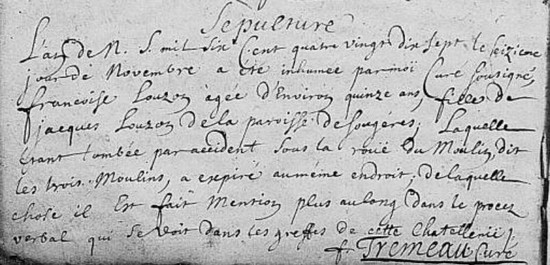 Sépulture
L'an de N. S. mil six Cent quatre vingt dix sept le seizieme
jour de Novembre a ete inhumée par moi Curé sousigné,
francoise Louzon agée d'Environ quinze ans, fille de
jacques Louzon de la paroisse de sougéres; Laquelle
etant tombée par accident sous la roüe du Moulin dit
les trois Moulins, a expiré au méme endroit; de laquelle
chose il Est fait Mention plus au long dans le procez
verbal qui se voit dans les greffes de cette Chatellenie
f. Tremeau Curé